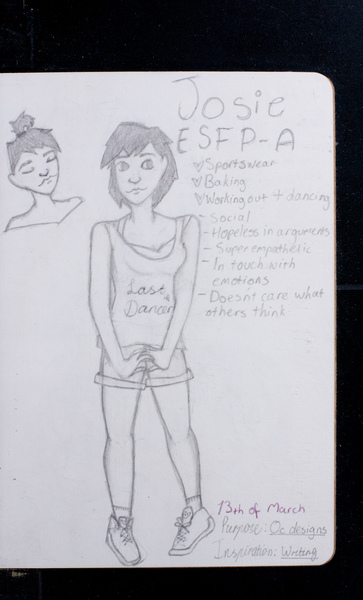 Josie
ESFP-A
Sportswear
Baking
Working out + dancing
- Social
- Hopeless in arguments
- Super empathetic
- In touch with
emotions
- Doesn't care what
others think
Last
Dancer
13th of March
Purpose: Oc designs
Inspiration: Writing